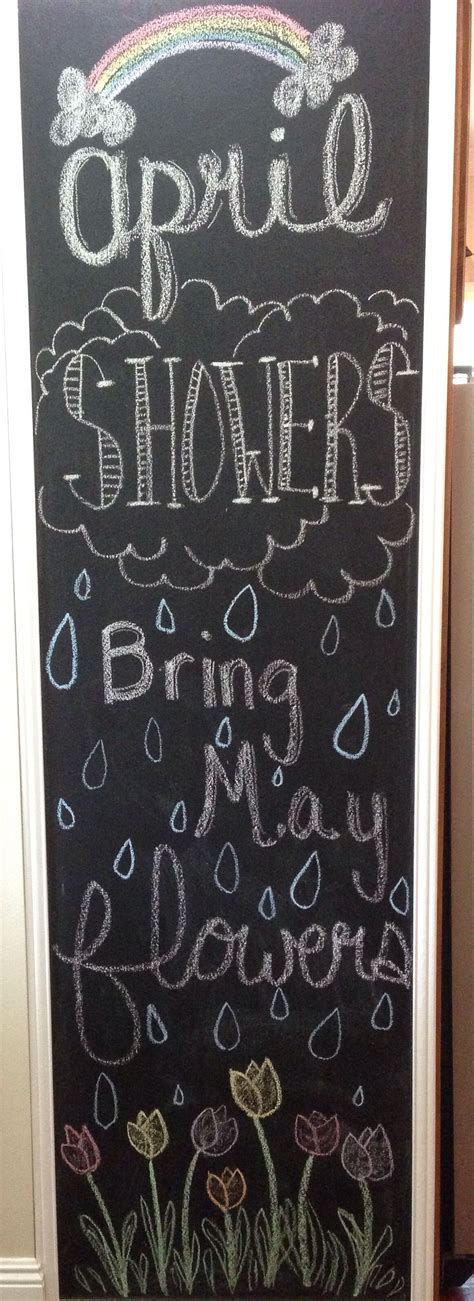 April
SHOWERS
Bring
May
flowers